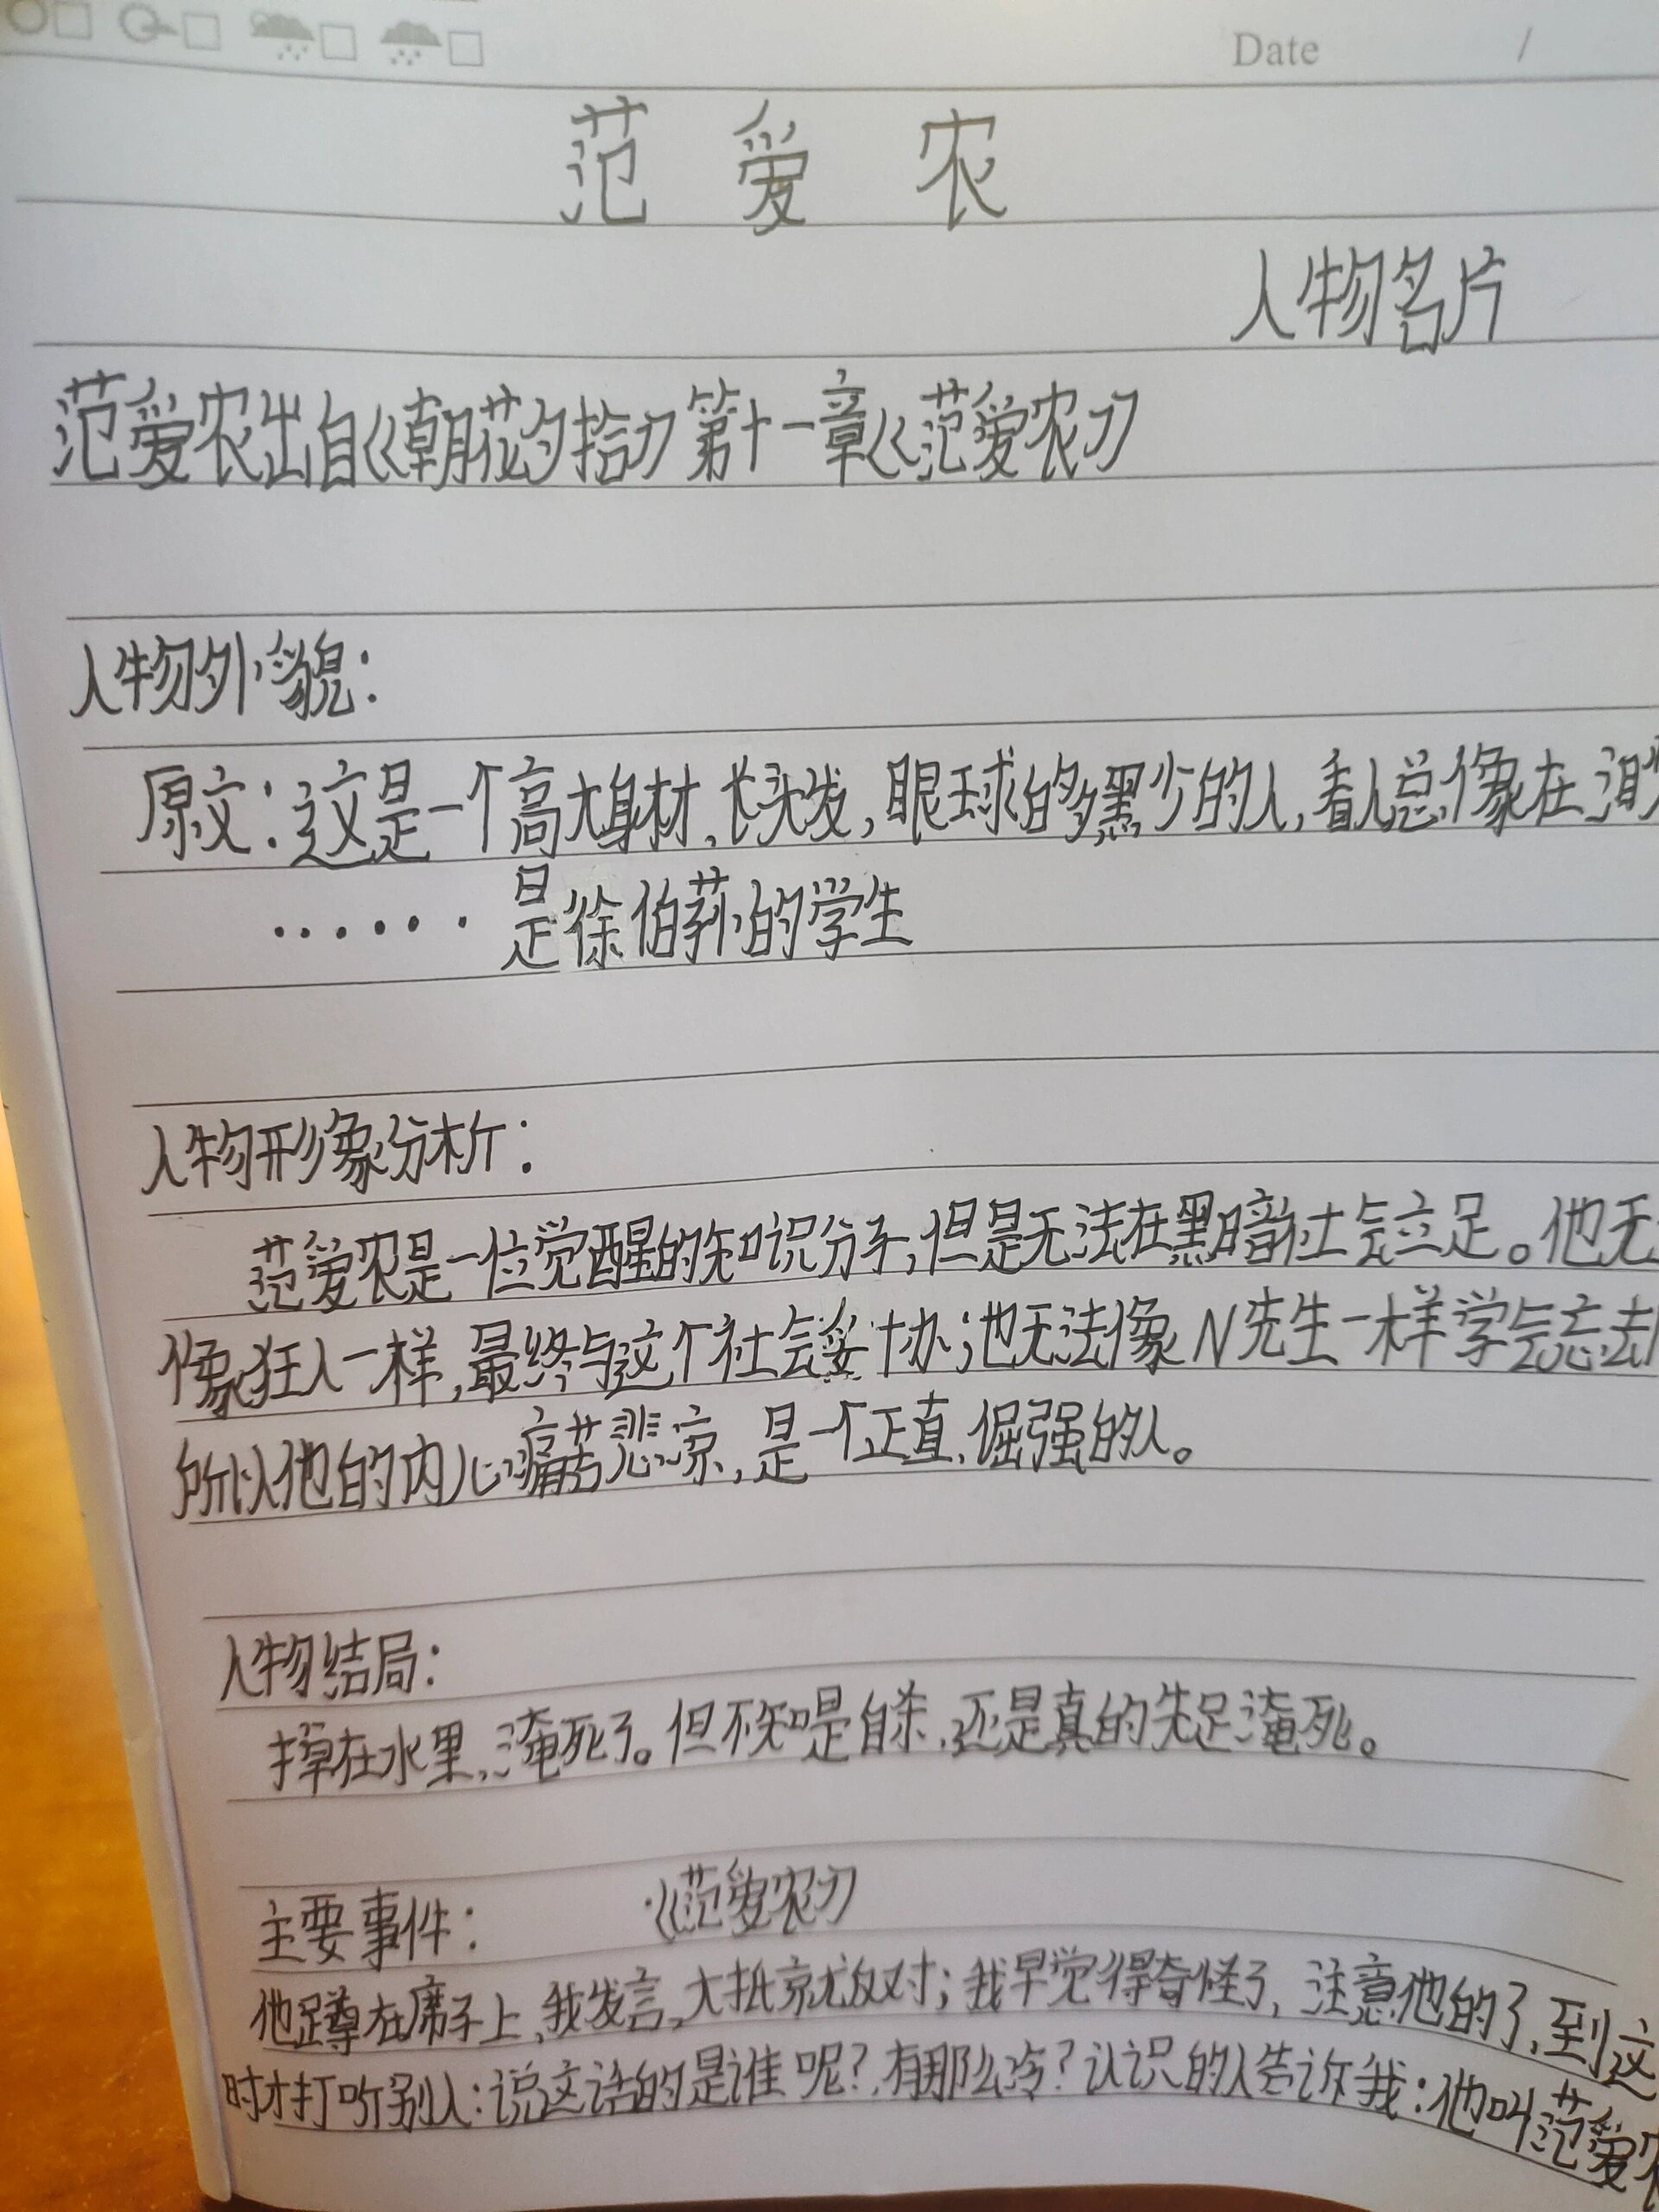 Date /
范爱农
人物名片
范爱农出自《朝花夕拾》第十一章《范爱农》
人物外貌:
原文:这是一个高大身材,长头发,眼球白多黑少的人,看人总像在
······是徐伯荪的学生
人物形象分析:
范爱农是一位觉醒的知识分子,但是无法在黑暗社会立足。他无
像狂人一样,最终与这个社会妥协;也无法像N先生一样学会忘却
所以他的内心痛苦悲凉,是一个正直、倔强的人。
人物结局:
掉在水里,淹死了。但不知是自杀,还是真的失足淹死。
主要事件: 《范爱农》
他蹲在席子上,我发言,大抵就反对;我早觉得奇怪了,注意他的了,到这
时才打听别人:说这话的是谁呢?有那么冷?认识的人告诉我:他叫范爱农